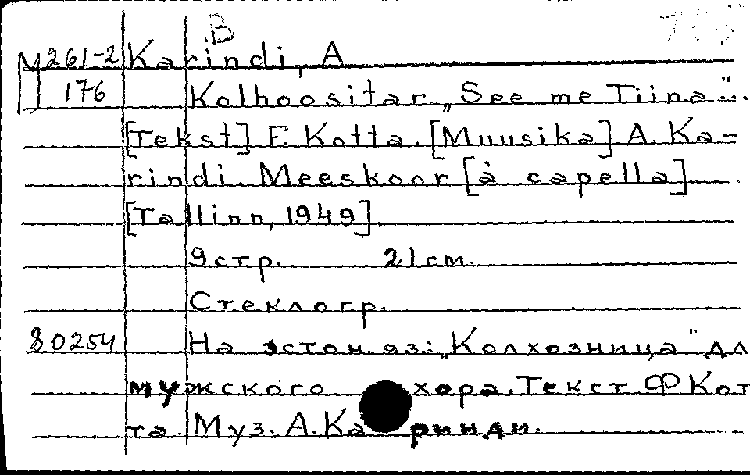 B
М261-2 Karindi, A
176 Kolhoositar „See me Tiina".
[Tekst] F. Kotta. [Muusika] A. Ka-
rindi. Meeskoor [à capella]
[Tallinn, 1949].
9 стр. 21 см.
Стеклогр.
80254 На эстон. яз: „Колхозница" дл
мужского хора. Текст Ф Кот
та Муз. А. Каринди.